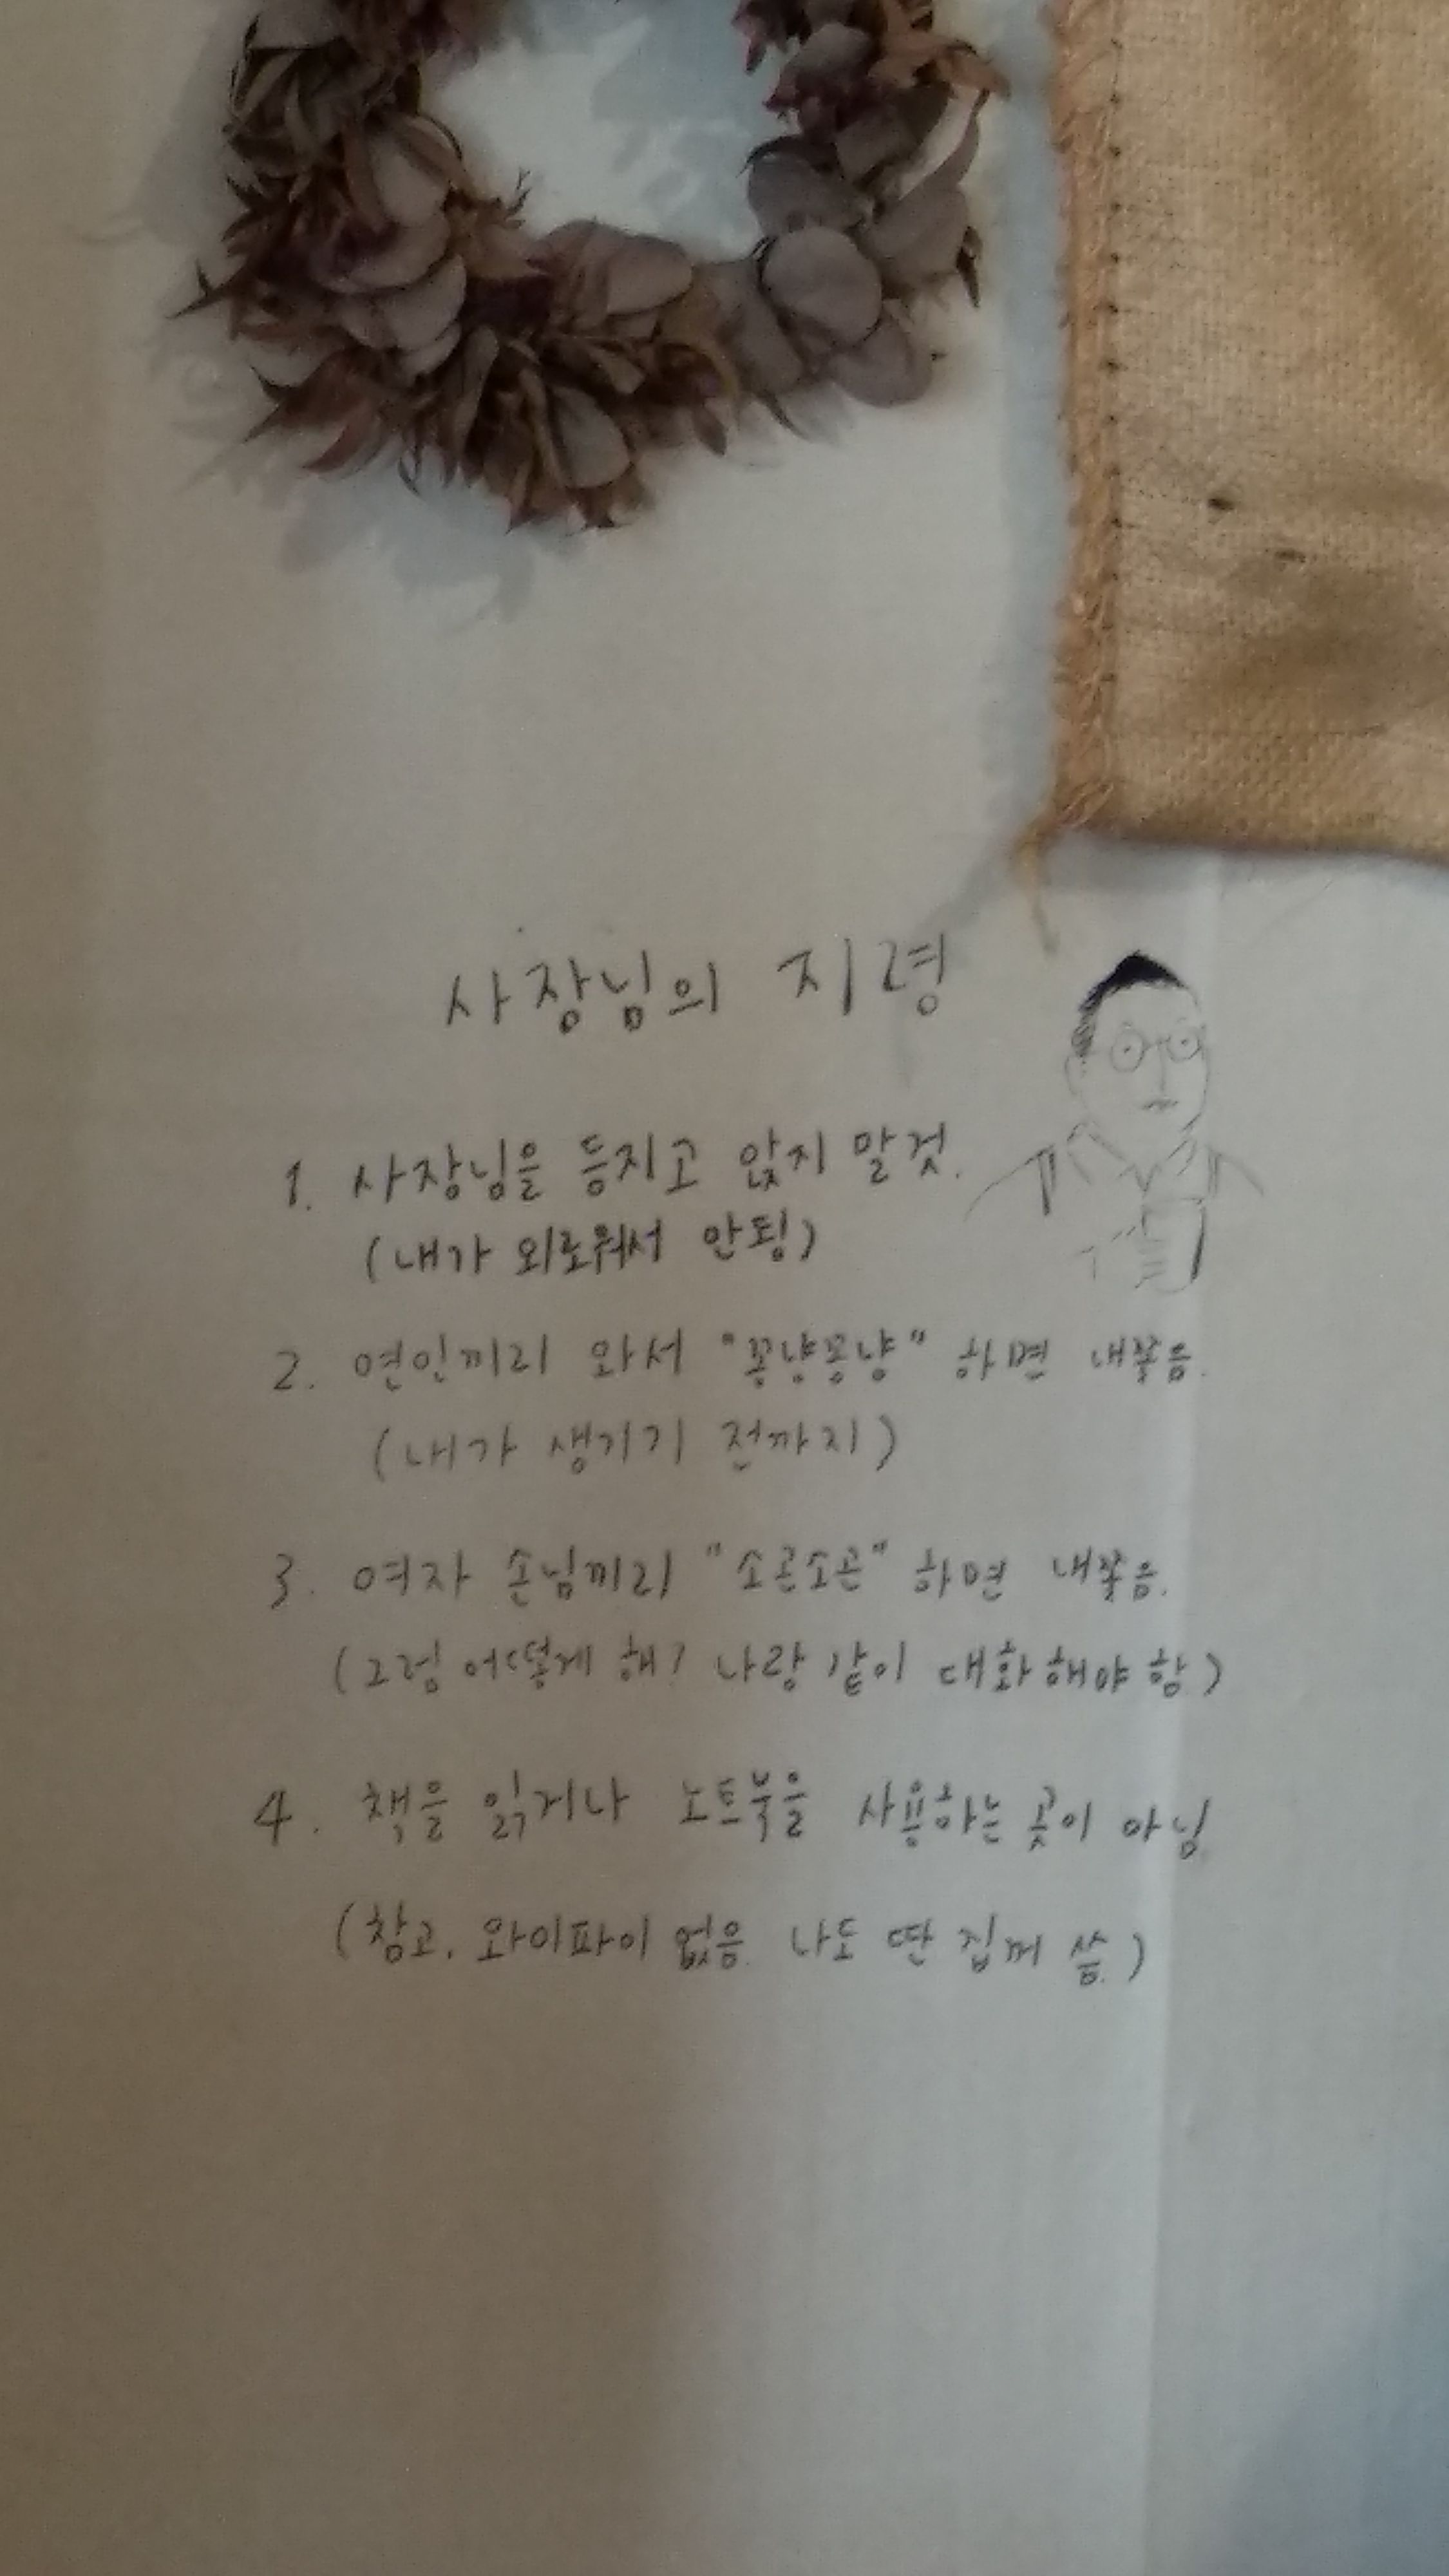 사장님의 지령
1. 사장님을 등지고 앉지 말것.
(내가 외로워서 안됨)
2. 연인끼리 와서 "꽁냥꽁냥" 하면 내쫓음.
(내가 생기기 전까지)
3. 여자 손님끼리 "소곤소곤" 하면 내쫓음.
(그럼 어떻게 해? 나랑 같이 대화해야 함)
4. 책을 읽거나 노트북을 사용하는 곳이 아님
(참고. 와이파이 없음. 나도 딴 집꺼 씀.)